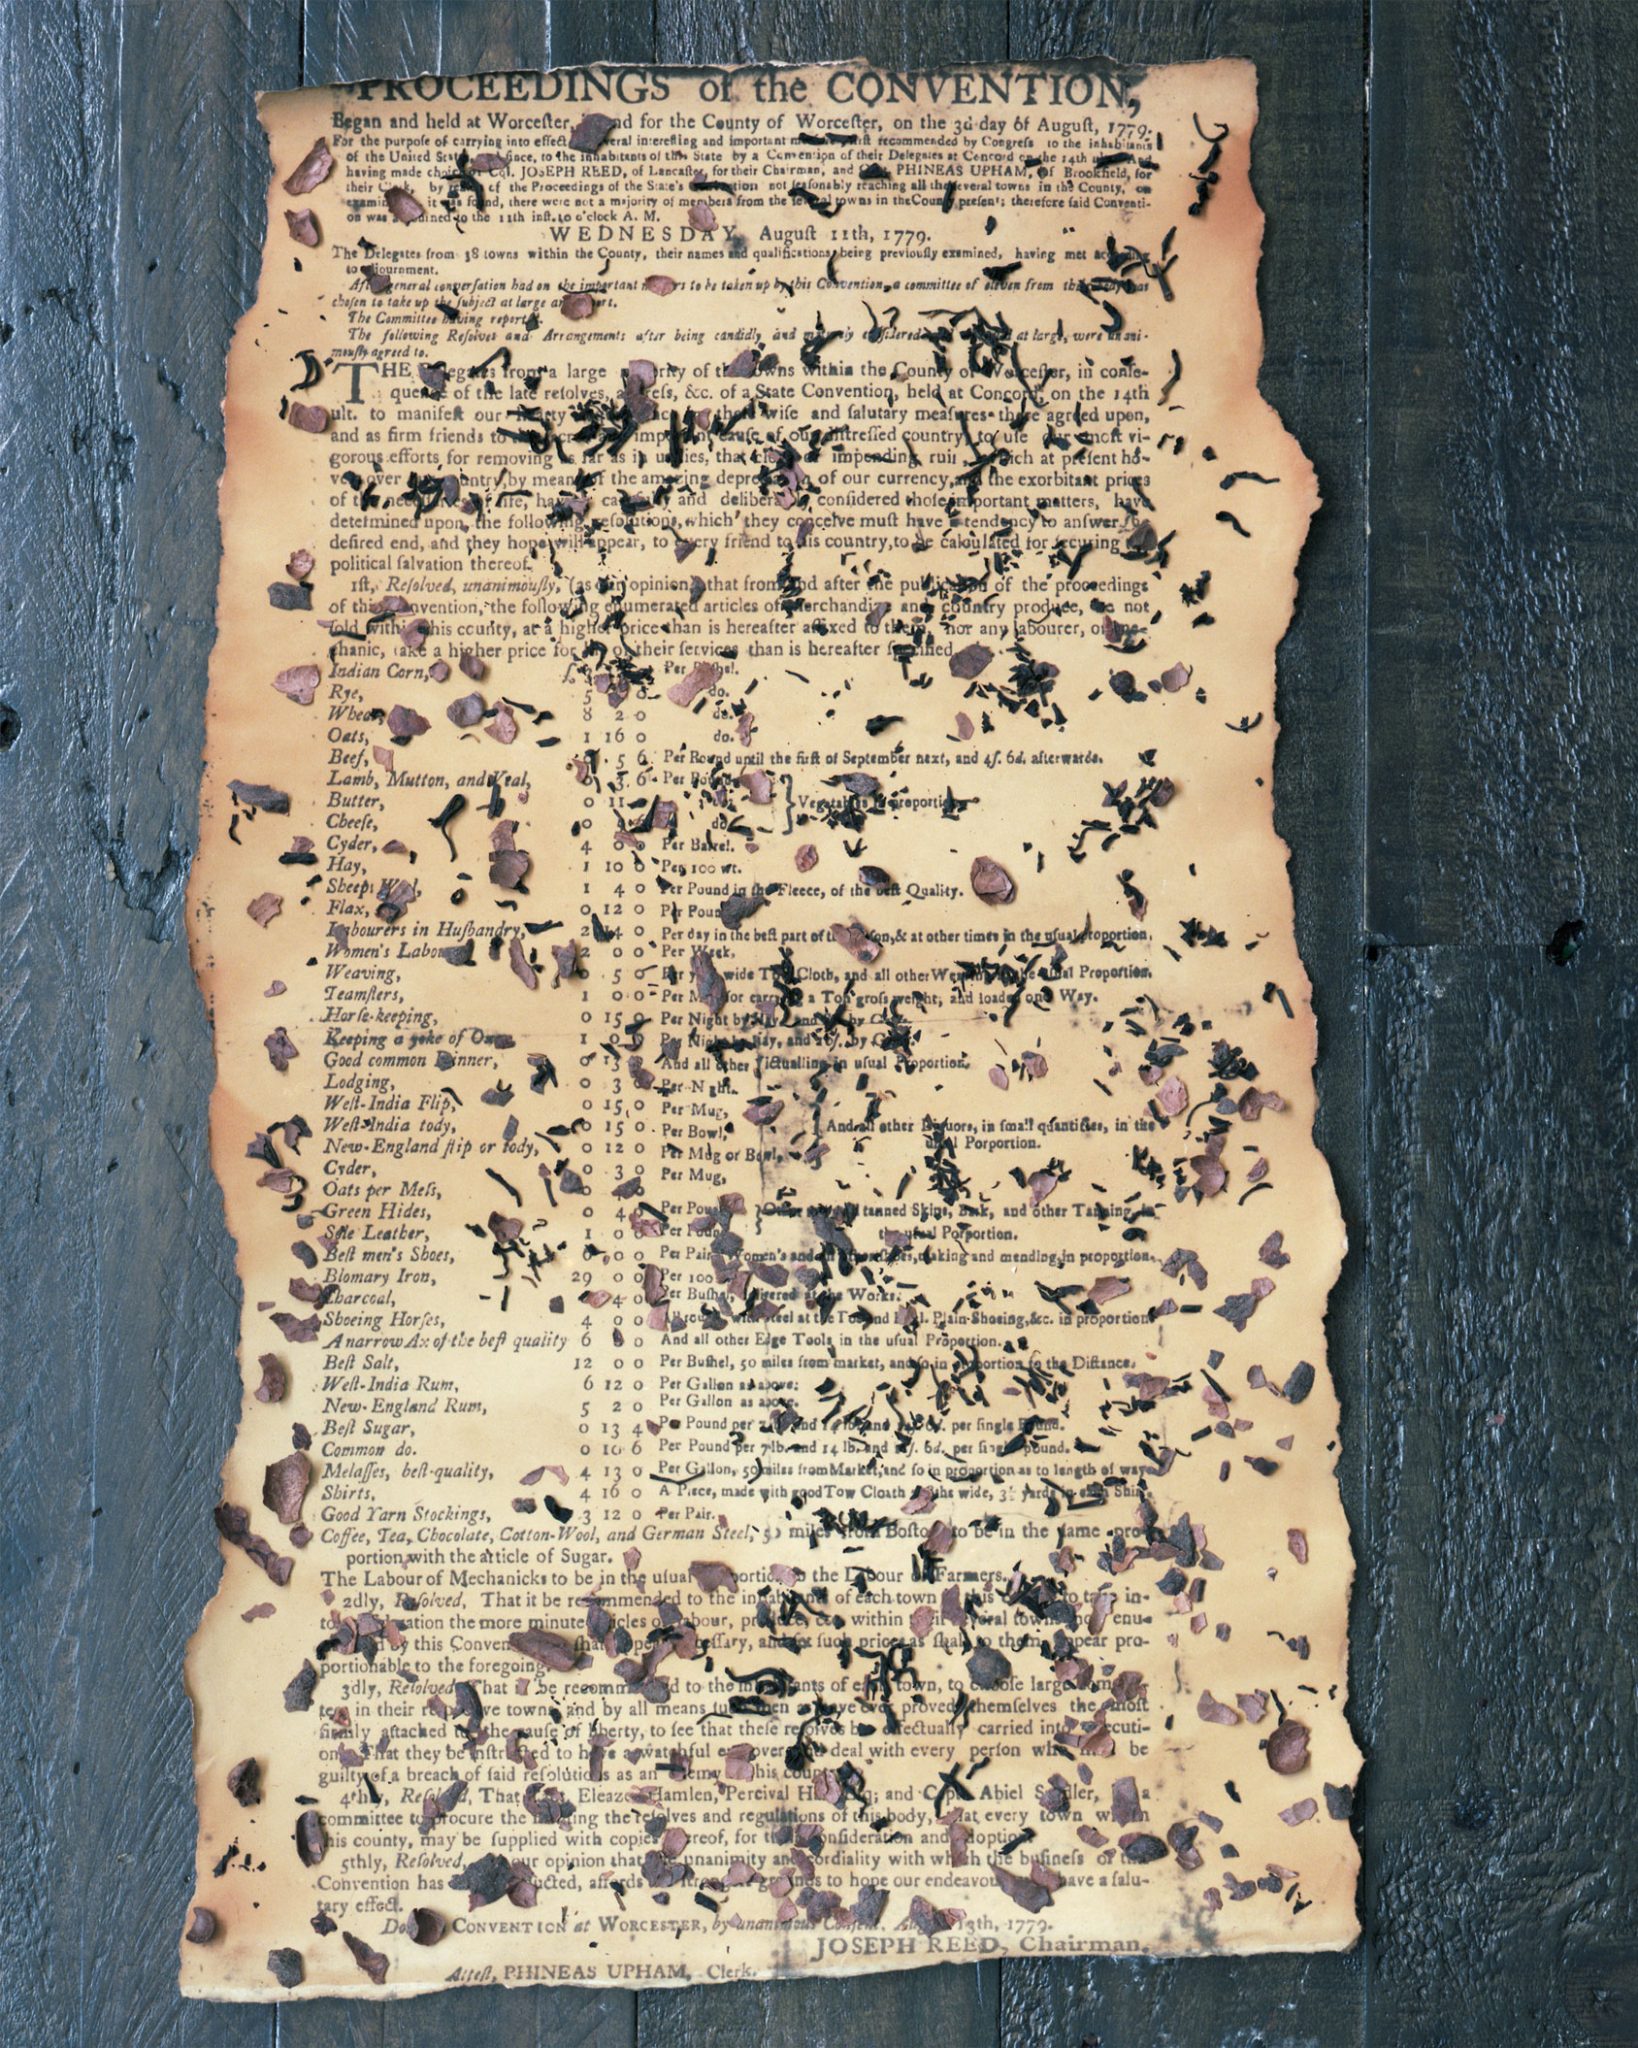 PROCEEDINGS of the CONVENTION,
Began and held at Worceſter, and for the County of Worceſter, on the 3d day of Auguſt, 1779.
For the purpoſe of carrying into effect ſeveral intereſting and important firſt recommended by Congreſs to the inhabitants
of the United ſince, to the inhabitants of this State by a Convention of their Delegates at Concord on the 14th And
having made choice of Col. JOSEPH REED, of Lancaſter, for their Chairman, and PHINEAS UPHAM, of Brookfield, for
their by of the Proceedings of the State's not ſeaſonably reaching all the ſeveral towns in the County, on
it was found, there were not a majority of members from the ſeveral towns in the County preſent; therefore ſaid Conventi-
on was to the 11th inſt. 10 o'clock A. M.
WEDNESDAY, Auguſt 11th, 1779.
The Delegates from 38 towns within the County, their names and qualifications being previouſly examined, having met according
to adjournment.
After general converſation had on the important matters to be taken up by this Convention, a committee of eleven from this body was
choſen to take up the ſubject at large and report.
The Committee having reported.
The following Reſolves and Arrangements after being candidly and maturely conſidered at large, were unani-
mouſly agreed to.
THE Delegates from a large majority of the towns within the County of Worceſter, in conſe-
quence of the late reſolves, addreſs, &c. of a State Convention, held at Concord, on the 14th
ult. to manifeſt our hearty thoſe wiſe and ſalutary meaſures there agreed upon,
and as firm friends to the important cauſe of our diſtreſſed country, to uſe our moſt vi-
gorous efforts for removing as far as in us lies, that impending ruin, which at preſent ho-
vers over country, by means of the amazing depreciation of our currency, and the exorbitant prices
of the neceſſaries of life, having carefully and deliberately conſidered thoſe important matters, have
determined upon the following reſolutions, which they conceive muſt have a tendency to anſwer the
deſired end, and they hope will appear, to every friend to his country, to be calculated for ſecuring the
political ſalvation thereof.
1ſt, Reſolved, unanimouſly, (as our opinion) that from and after the publication of the proceedings
of this Convention, the following enumerated articles of merchandize and country produce, be not
ſold within this county, at a higher price than is hereafter affixed to them, nor any labourer, or me-
chanic, take a higher price for any of their ſervices than is hereafter ſpecified.
Indian Corn, Per Buſhel.
Rye, 5 0 do.
Wheat, 8 2 0 do.
Oats, 1 16 0 do.
Beef, 5 6 Per Pound until the firſt of September next, and 4ſ. 6d. afterwards.
Lamb, Mutton, and Veal, 0 3 6 Per Pound.
Butter, 0 11 do. } Vegetables in proportion.
Cheeſe, 0 do.
Cyder, 4 0 0 Per Barrel.
Hay, 1 10 0 Per 100 wt.
Sheeps Wool, 1 4 0 Per Pound in the Fleece, of the beſt Quality.
Flax, 0 12 0 Per Pound
Labourers in Huſbandry, 2 14 0 Per day in the beſt part of the ſeaſon, & at other times in the uſual proportion.
Women's Labour 2 0 0 Per Week.
Weaving, 0 5 0 Per yard wide Tow Cloth, and all other Weaving in the uſual Proportion.
Teamſters, 1 0 0 Per Mile for carrying a Ton groſs weight, and loaded one Way.
Horſe-keeping, 0 15 0 Per Night by Hay, and by
Keeping a yoke of Oxen 1 0 0 Per Night by Hay, and by
Good common Dinner, 0 15 0 And all other Victualling in uſual Proportion.
Lodging, 0 3 0 Per Night.
Weſt-India Flip, 0 15 0 Per Mug,
Weſt-India tody, 0 15 0 Per Bowl, } And all other Liquors, in ſmall quantities, in the
New-England flip or tody, 0 12 0 Per Mug or Bowl, uſual Porportion.
Cyder, 0 3 0 Per Mug,
Oats per Meſs, 0
Green Hides, 0 4 0 Per Pound } tanned Skins, Bark, and other Tanning, in
Sole Leather, 1 0 0 Per Pound the uſual Porportion.
Beſt men's Shoes, 6 0 0 Per Pair, Women's and making and mending, in proportion.
Blomary Iron, 29 0 0 Per 100
Charcoal, 4 0 Per Buſhel, delivered at the Works.
Shoeing Horſes, 4 0 0 All round, with ſteel at the Toe and Heel. Plain Shoeing, &c. in proportion.
A narrow Ax of the beſt quality 6 0 0 And all other Edge Tools in the uſual Proportion.
Beſt Salt, 12 0 0 Per Buſhel, 50 miles from market, and ſo in proportion to the Diſtance.
Weſt-India Rum, 6 12 0 Per Gallon as above:
New-England Rum, 5 2 0 Per Gallon as above.
Beſt Sugar, 0 13 4 Per Pound per and 14 lb. and per ſingle Pound.
Common do. 0 10 6 Per Pound per 7lb. and 14 lb. and 6d. per ſingle pound.
Melaſſes, beſt-quality, 4 13 0 Per Gallon, 50 miles from Market, and ſo in proportion as to length of way.
Shirts, 4 16 0 A Piece, made with good Tow Cloath wide, 3½ yards in each Shirt.
Good Yarn Stockings, 3 12 0 Per Pair.
Coffee, Tea, Chocolate, Cotton-Wool, and German Steel, 50 miles from Boſton, to be in the ſame pro-
portion with the article of Sugar.
The Labour of Mechanicks to be in the uſual proportion to the Labour of Farmers.
2dly, Reſolved, That it be recommended to the inhabitants of each town in this to take in-
to conſideration the more minute articles of labour, produce, &c. within their ſeveral towns not enu-
by this Convention ſhall appear neceſſary, and ſet ſuch prices as ſhall to them appear pro-
portionable to the foregoing.
3dly, Reſolved, That it be recommended to the inhabitants of each town, to chooſe large commit-
tees in their reſpective towns, and by all means ſuch men as have ever proved themſelves the moſt
firmly attached to the cauſe of liberty, to ſee that theſe reſolves be effectually carried into executi-
on. That they be inſtructed to have a watchful eye over and deal with every perſon who be
guilty of a breach of ſaid reſolutions as an enemy to his country.
4thly, Reſolved, That Eleazer Hamlen, Percival and Capt. Abiel a
committee to procure the printing the reſolves and regulations of this body, that every town within
this county, may be ſupplied with copies thereof, for their conſideration and adoption.
5thly, Reſolved, our opinion that the unanimity and cordiality with which the buſineſs of this
Convention has conducted, affords grounds to hope our endeavours have a ſalu-
tary effect.
CONVENTION at WORCESTER, by unanimous Conſent, 13th, 1779.
JOSEPH REED, Chairman.
Atteſt, PHINEAS UPHAM, Clerk.